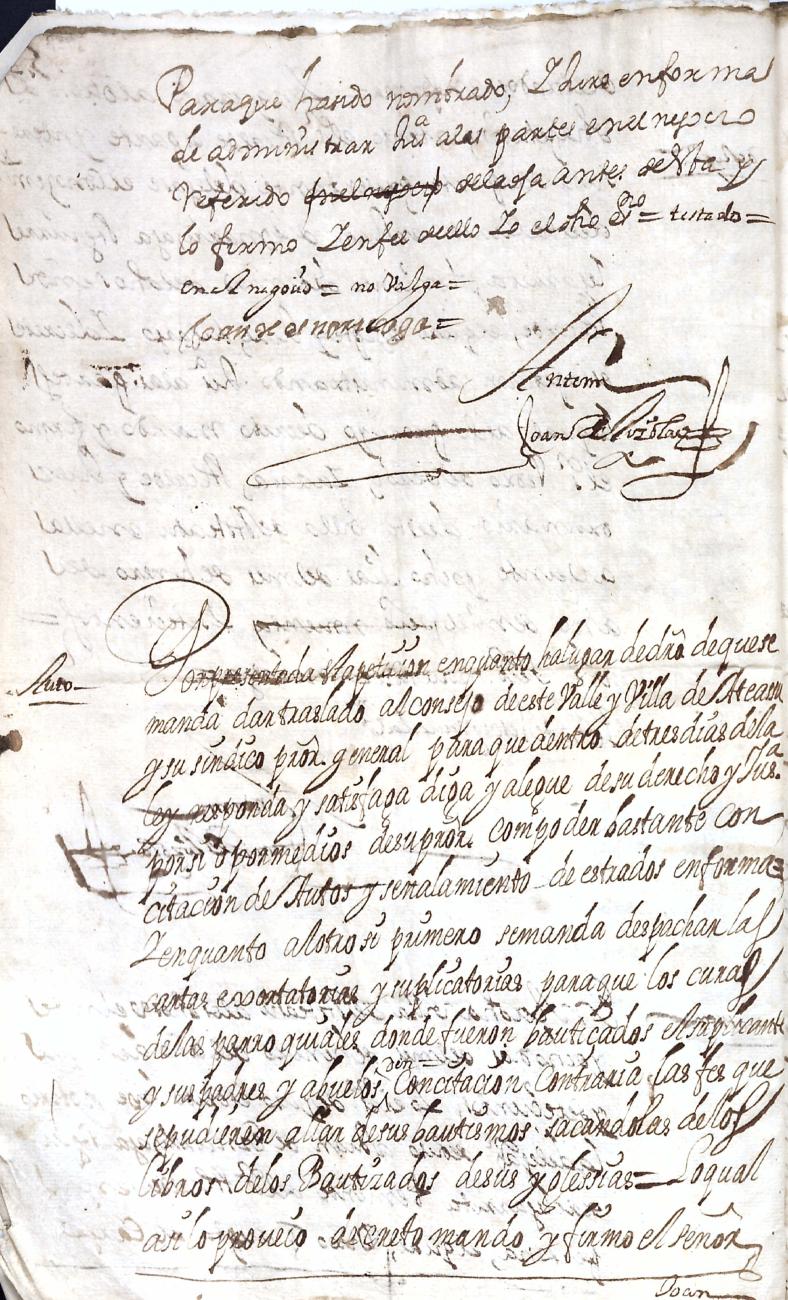 Paraque hasido nombrado, Y Juro enforma
de administrar Jusª alas partes enel negocio
referido enel negocio delacossa antes de sta y
lo firmo Yenfee dello Yo el dho essno = testado =
enel negocio = no Valga =
Joan de
Antemi
Joans de
Auto
Por presentada sta peticion enquanto halugar dedro deque se
manda dar traslado alconsejo deeste Valle y Villa de Ateaun
y su sindico pror. general paraque dentro detresdias della
ley responda y satisfaga diga y alegue desu derecho y Jusª
porsi o pormedios desupror. compoder bastante con
citacion de Autos y señalamiento de estrados enforma =
Yenquanto alotro si primero semanda despachar las
cartas exortatorias y suplicatorias paraque los curas
delas parroquiales donde fueron bautiçados el suplicante
y sus padres y abuelos den = Concitacion Contraria las fes que
sepudieren allar desus bautismos sacandolas delos
libros delos Bautizados desus yglessias = Loqual
asi lo proveio decreto mando y firmo el señor
Joan